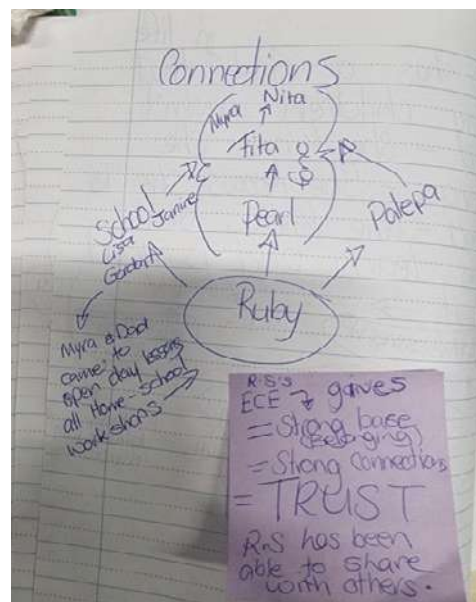 Connections
Nita
Myra
Tita
Pearl
School
Lisa Janine
Gordon
Palepa
Ruby
Myra & Dad
came to
open day
all Home-School
workshops
R.S's
ECE gives
= Strong base
(Belonging)
= Strong connections
= TRUST
R.S has been
able to share
with others.